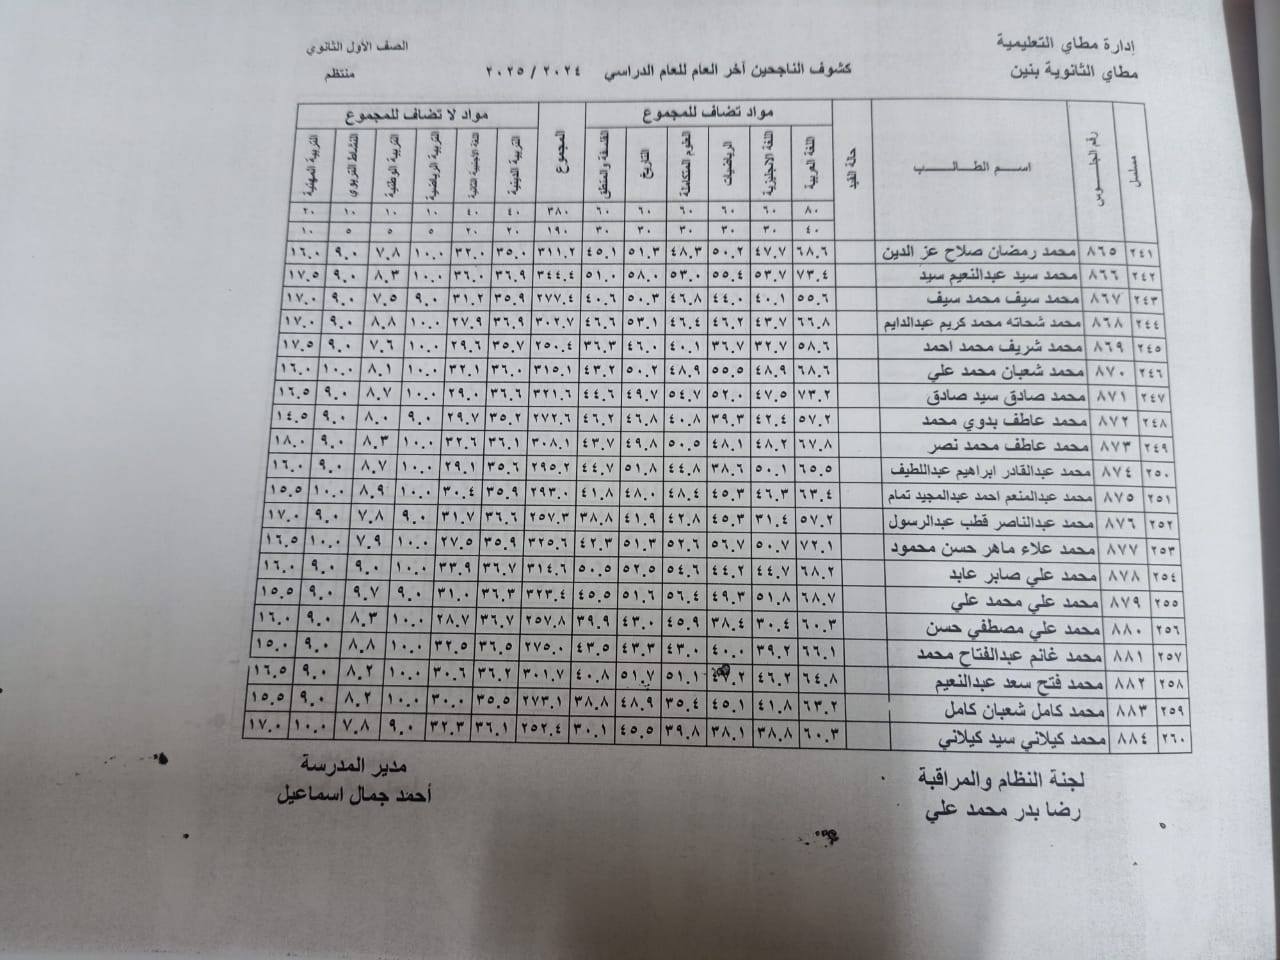 إدارة مطاي التعليمية
مطاي الثانوية بنين
كشوف الناجحين آخر العام للعام الدراسي ٢٠٢٤ / ٢٠٢٥
الصف الأول الثانوي
منتظم
مسلسل رقم الجلــوس اســم الطالـــــب حالة القيد مواد تضاف للمجموع المجموع مواد لا تضاف للمجموع
اللغة العربية اللغة الانجليزية الرياضيات العلوم المتكاملة التاريخ الفلسفة والمنطق التربية الدينية اللغة الأجنبية الثانية التربية الرياضية التربية الوطنية النشاط التربوي التربية المهنية
٨٠ ٦٠ ٦٠ ٦٠ ٦٠ ٦٠ ٣٨٠ ٤٠ ٤٠ ١٠ ١٠ ١٠ ٢٠
٤٠ ٣٠ ٣٠ ٣٠ ٣٠ ٣٠ ١٩٠ ٢٠ ٢٠ ٥ ٥ ٥ ١٠
٢٤١ ٨٦٥ محمد رمضان صلاح عز الدين ٦٨.٦ ٤٧.٧ ٥٠.٢ ٤٨.٣ ٥١.٣ ٤٥.١ ٣١١.٢ ٣٥.٠ ٣٢.٠ ١٠.٠ ٧.٨ ٩.٠ ١٦.٠
٢٤٢ ٨٦٦ محمد سيد عبدالنعيم سيد ٧٣.٤ ٥٣.٧ ٥٥.٤ ٥٣.٠ ٥٨.٠ ٥١.٠ ٣٤٤.٤ ٣٦.٩ ٣٦.٠ ١٠.٠ ٨.٣ ٩.٠ ١٧.٥
٢٤٣ ٨٦٧ محمد سيف محمد سيف ٥٥.٦ ٤٠.١ ٤٤.٠ ٤٦.٨ ٥٠.٣ ٤٠.٦ ٢٧٧.٤ ٣٥.٩ ٣١.٢ ٩.٠ ٧.٥ ٩.٠ ١٧.٠
٢٤٤ ٨٦٨ محمد شحاته محمد كريم عبدالدايم ٦٦.٨ ٤٣.٧ ٤٦.٢ ٤٦.٤ ٥٣.١ ٤٦.٦ ٣٠٢.٧ ٣٦.٩ ٢٧.٩ ١٠.٠ ٨.٨ ٩.٠ ١٧.٠
٢٤٥ ٨٦٩ محمد شريف محمد احمد ٥٨.٦ ٣٢.٧ ٣٦.٧ ٤٠.١ ٤٦.٠ ٣٦.٣ ٢٥٠.٤ ٣٥.٧ ٢٩.٦ ١٠.٠ ٧.٦ ٩.٠ ١٧.٥
٢٤٦ ٨٧٠ محمد شعبان محمد علي ٦٨.٦ ٤٨.٩ ٥٥.٥ ٤٨.٩ ٥٠.٢ ٤٣.٢ ٣١٥.١ ٣٦.٠ ٣٢.١ ١٠.٠ ٨.١ ١٠.٠ ١٦.٠
٢٤٧ ٨٧١ محمد صادق سيد صادق ٧٣.٢ ٤٧.٥ ٥٢.٠ ٥٤.٧ ٤٩.٧ ٤٤.٦ ٣٢١.٦ ٣٦.٦ ٢٩.٠ ١٠.٠ ٨.٧ ٩.٠ ١٦.٥
٢٤٨ ٨٧٢ محمد عاطف بدوي محمد ٥٧.٢ ٤٢.٤ ٣٩.٣ ٤٠.٨ ٤٦.٨ ٤٦.٢ ٢٧٢.٦ ٣٥.٢ ٢٩.٧ ٩.٠ ٨.٠ ٩.٠ ١٤.٥
٢٤٩ ٨٧٣ محمد عاطف محمد نصر ٦٧.٨ ٤٨.٢ ٤٨.١ ٥٠.٥ ٤٩.٨ ٤٣.٧ ٣٠٨.١ ٣٦.١ ٣٢.٦ ١٠.٠ ٨.٣ ٩.٠ ١٨.٠
٢٥٠ ٨٧٤ محمد عبدالقادر ابراهيم عبداللطيف ٦٥.٥ ٥٠.١ ٣٨.٦ ٤٤.٨ ٥١.٨ ٤٤.٧ ٢٩٥.٢ ٣٥.٦ ٢٩.١ ١٠.٠ ٨.٧ ٩.٠ ١٦.٠
٢٥١ ٨٧٥ محمد عبدالمنعم احمد عبدالمجيد تمام ٦٣.٤ ٤٦.٣ ٤٥.٣ ٤٨.٤ ٤٨.٠ ٤١.٨ ٢٩٣.٠ ٣٥.٩ ٣٠.٤ ١٠.٠ ٨.٩ ١٠.٠ ١٥.٥
٢٥٢ ٨٧٦ محمد عبدالناصر قطب عبدالرسول ٥٧.٢ ٣١.٤ ٤٥.٣ ٤٢.٨ ٤١.٩ ٣٨.٨ ٢٥٧.٣ ٣٦.٦ ٣١.٧ ٩.٠ ٧.٨ ٩.٠ ١٧.٠
٢٥٣ ٨٧٧ محمد علاء ماهر حسن محمود ٧٢.١ ٥٠.٧ ٥٦.٧ ٥٢.٦ ٥١.٣ ٤٢.٣ ٣٢٥.٦ ٣٥.٩ ٢٧.٥ ١٠.٠ ٧.٩ ١٠.٠ ١٦.٥
٢٥٤ ٨٧٨ محمد علي صابر عابد ٦٨.٢ ٤٤.٧ ٤٤.٢ ٥٤.٦ ٥٢.٥ ٥٠.٥ ٣١٤.٦ ٣٦.٧ ٣٣.٩ ١٠.٠ ٩.٠ ٩.٠ ١٦.٠
٢٥٥ ٨٧٩ محمد علي محمد علي ٦٨.٧ ٥١.٨ ٤٩.٣ ٥٦.٤ ٥١.٦ ٤٥.٥ ٣٢٣.٤ ٣٦.٣ ٣١.٠ ٩.٠ ٩.٧ ٩.٠ ١٥.٥
٢٥٦ ٨٨٠ محمد علي مصطفي حسن ٦٠.٣ ٣٠.٤ ٣٨.٤ ٤٥.٩ ٤٣.٠ ٣٩.٩ ٢٥٧.٨ ٣٦.٧ ٢٨.٧ ١٠.٠ ٨.٣ ٩.٠ ١٦.٠
٢٥٧ ٨٨١ محمد غانم عبدالفتاح محمد ٦٦.١ ٣٩.٢ ٤٠.٠ ٤٣.٠ ٤٣.٣ ٤٣.٥ ٢٧٥.٠ ٣٦.٥ ٣٢.٥ ١٠.٠ ٨.٨ ٩.٠ ١٥.٠
٢٥٨ ٨٨٢ محمد فتح سعد عبدالنعيم ٦٤.٨ ٤٦.٢ ٤٧.٢ ٥١.١ ٥١.٧ ٤٠.٨ ٣٠١.٧ ٣٦.٢ ٣٠.٦ ١٠.٠ ٨.٢ ٩.٠ ١٦.٥
٢٥٩ ٨٨٣ محمد كامل شعبان كامل ٦٣.٢ ٤١.٨ ٤٥.١ ٣٥.٤ ٤٨.٩ ٣٨.٨ ٢٧٣.١ ٣٥.٥ ٣٠.٠ ١٠.٠ ٨.٢ ٩.٠ ١٥.٥
٢٦٠ ٨٨٤ محمد كيلاني سيد كيلاني ٦٠.٣ ٣٨.٨ ٣٨.١ ٣٩.٨ ٤٥.٥ ٣٠.١ ٢٥٢.٤ ٣٦.١ ٣٢.٣ ٩.٠ ٧.٨ ١٠.٠ ١٧.٠
لجنة النظام والمراقبة
رضا بدر محمد علي
مدير المدرسة
أحمد جمال اسماعيل